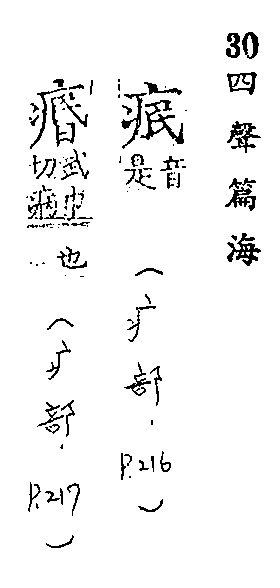 30四聲篇海
音是（疒部.P.216）
痻武巾切病也…（疒部.P.217）